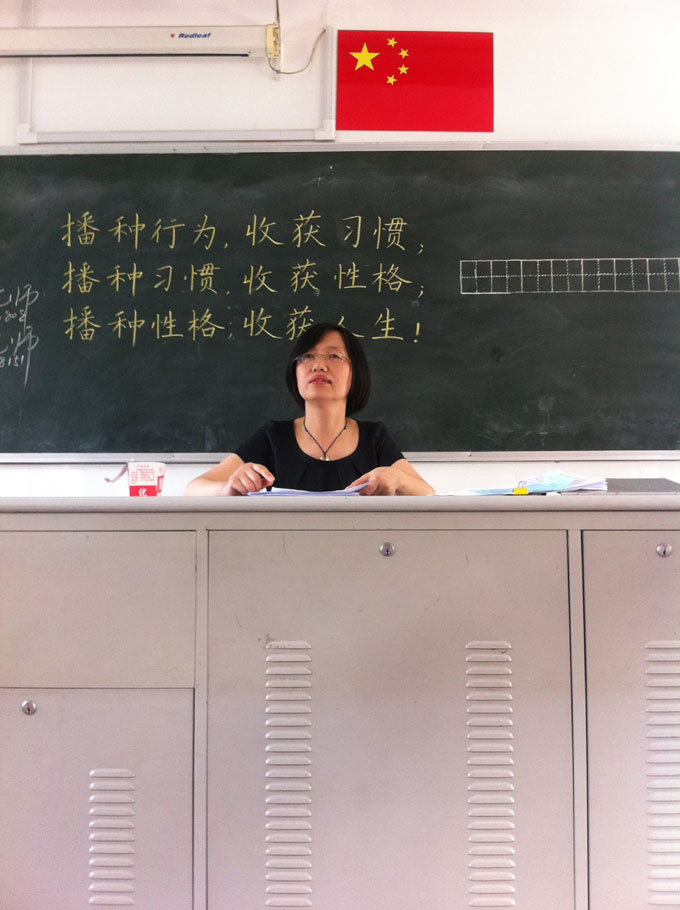 Redleaf
播种行为,收获习惯;
播种习惯,收获性格;
播种性格,收获人生!